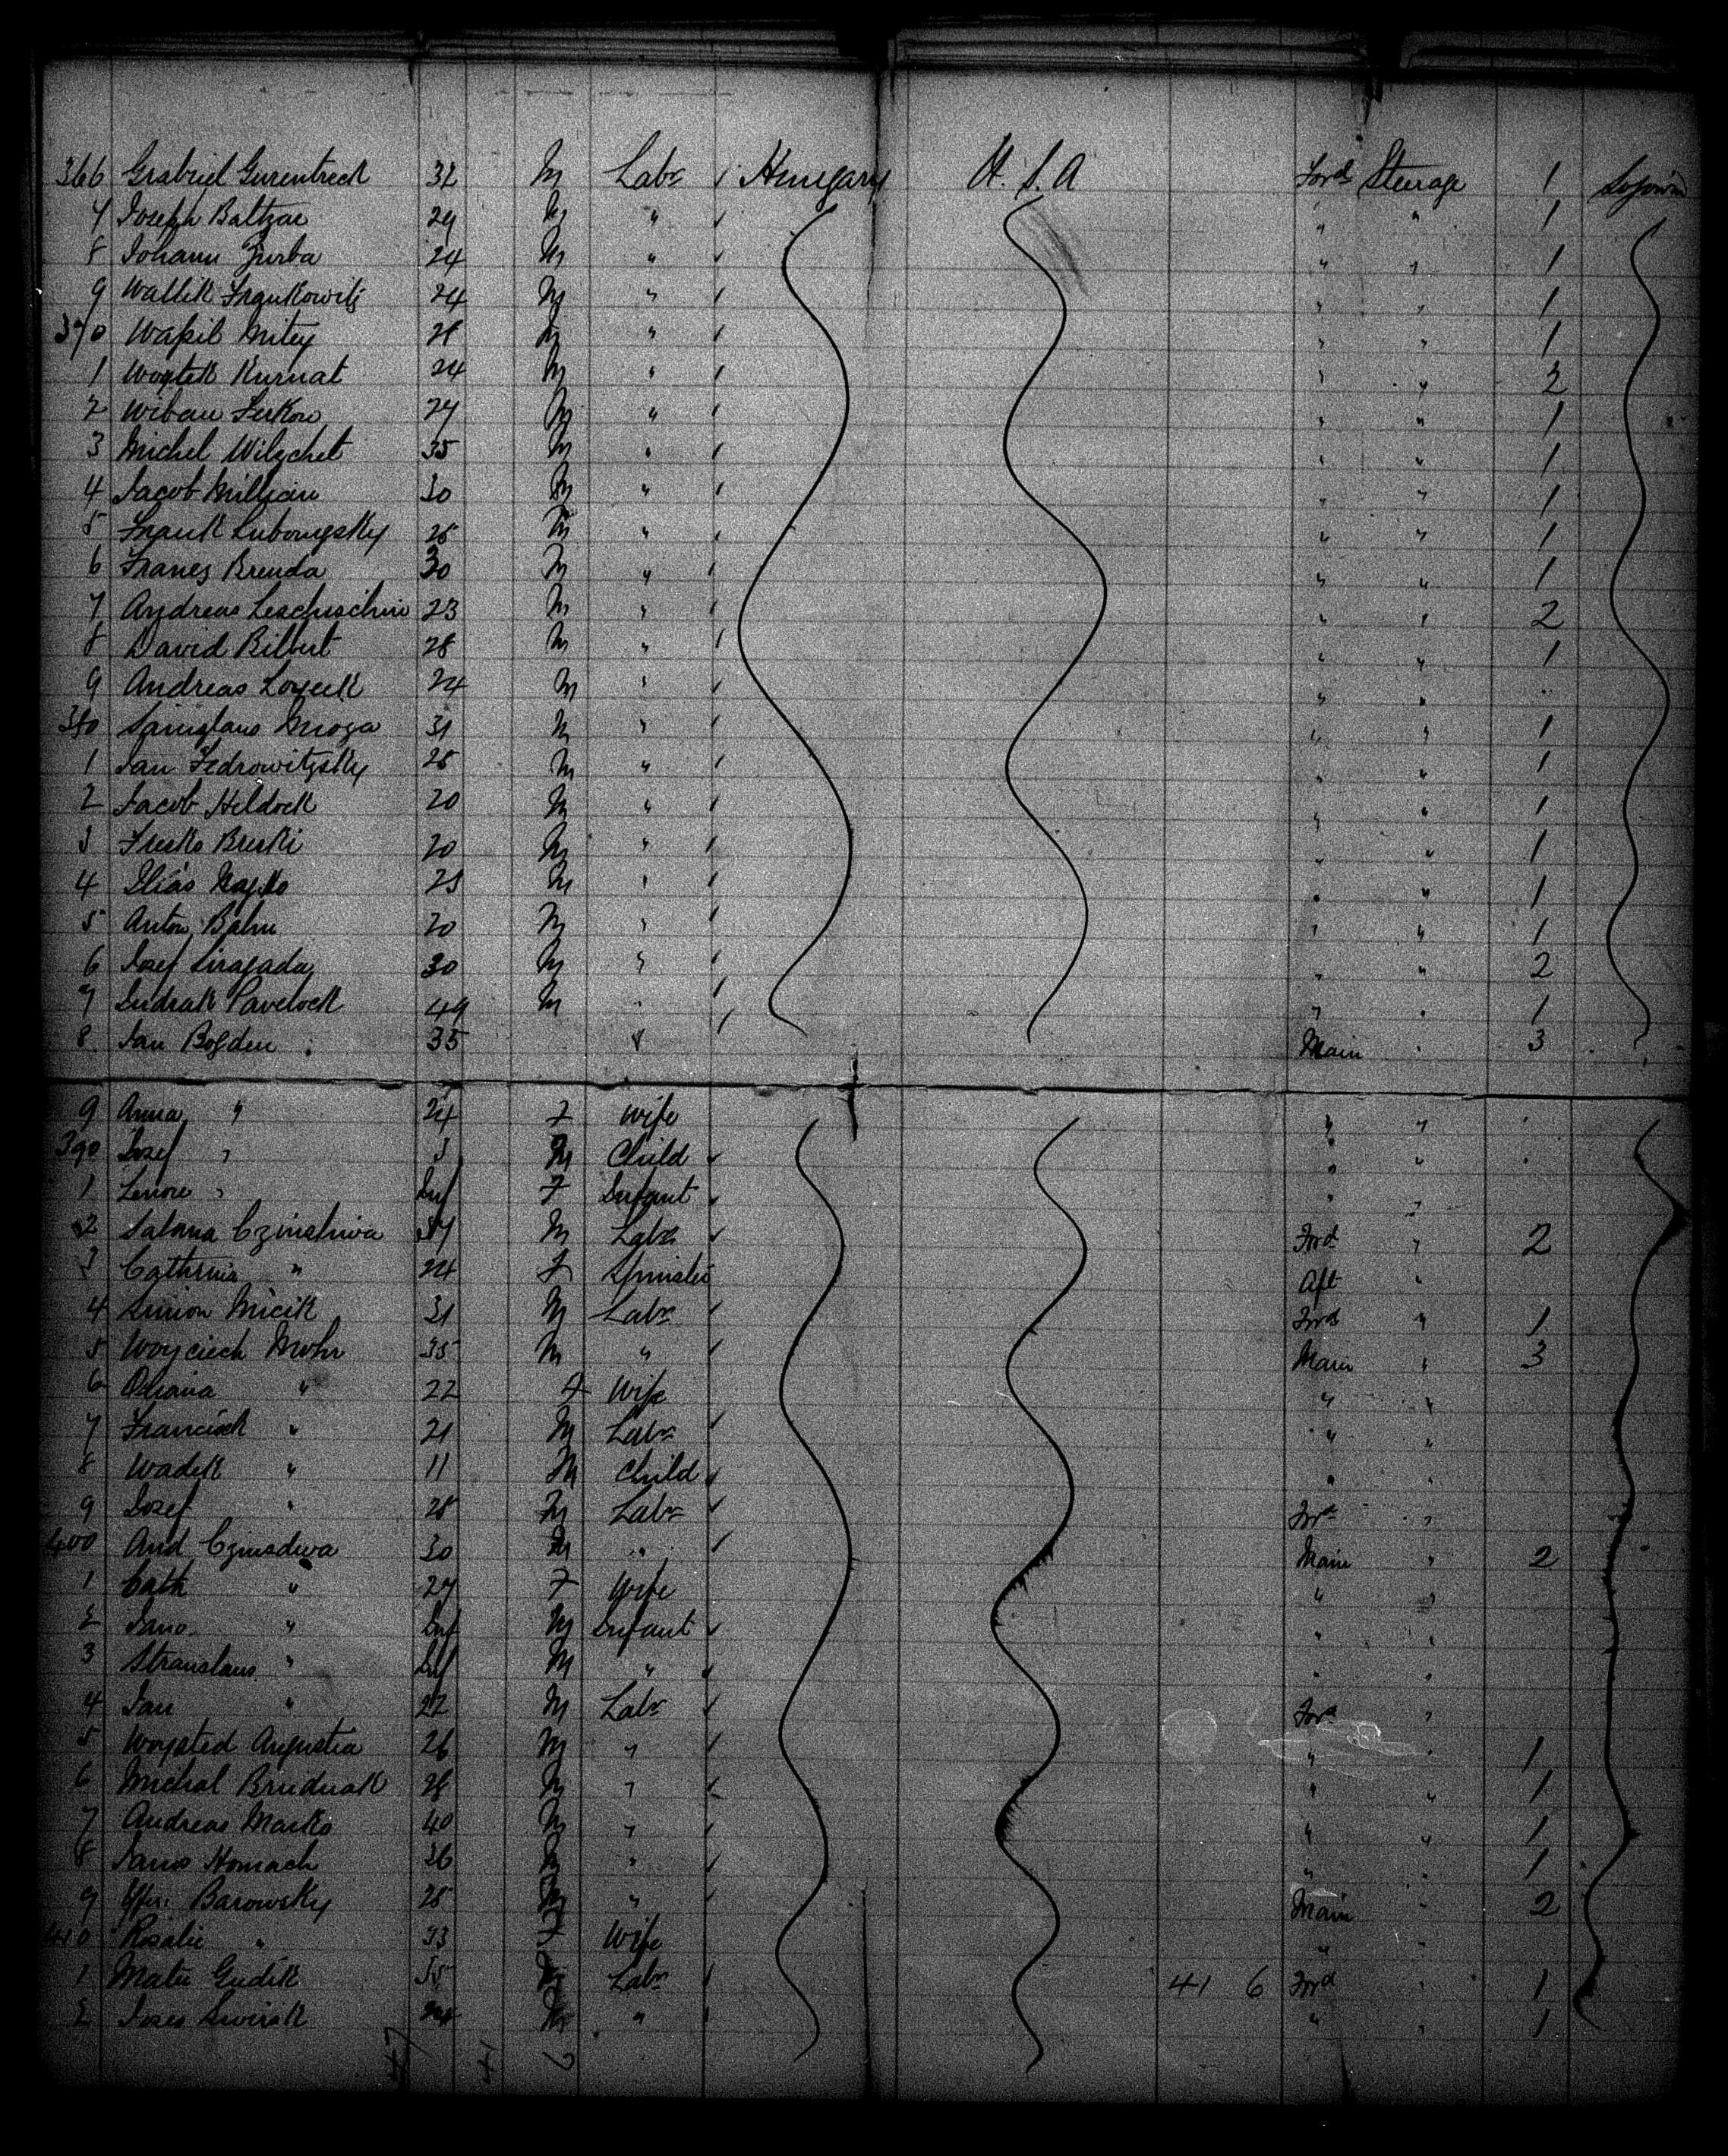 366 Grabriel Gurentreck 32 M Labr / Hungary U. S. A Ford Steerage 1 Sojourn
7 Joseph Baltzar 29 M " / " " 1
8 Johann Zurba 24 M " / " " 1
9 Wallek Frankowitz 24 M " / " " 1
370 Wasil Mitey 28 M " / " " 1
1 Woytek Kurnat 24 M " / " " 2
2 Urban 27 M " / " " 1
3 Michel Wilschet 35 M " / " " 1
4 Jacob Millian 30 M " / " " 1
5 Frank Lubonysky 25 M " / " " 1
6 Franes Brenda 30 M " / " " 1
7 Andreas Leschischin 23 M " / " " 2
8 David Bilbert 28 M " / " " 1
9 Andreas Loyeck 24 M " / " "
380 Mroga 31 M " / " " 1
1 Jan Fedrowitzsky 28 M " / " " 1
2 Jacob Heldock 20 M " / " " 1
3 Fresko Breski 20 M " / " " 1
4 Elias 25 M " / " " 1
5 Anton Bahn 20 M " / " " 1
6 Josef 30 M " / " " 2
7 Indrak Pavelock 49 M " / " " 1
8 Jan Bogden 35 " / Main " 3
9 Anna " 24 F Wife " "
390 Josef " 3 M Child / " "
1 Lenore " Inf F Infant / " "
2 Salama Czinshiva M Labr / Ford " 2
3 Cathrina " 24 F Spinster Aft "
4 Simon Micik 31 M Labr / Ford " 1
5 Woyciech Mohr 35 M " / Main " 3
6 " 22 F Wife " "
7 Francisk " 21 M Labr / " "
8 Wadek " 11 M Child / " "
9 Josef " 28 M Labr / Ford "
400 And Czinsdiva 30 M " / Main " 2
1 Cath " 27 F Wife " "
2 Jano " Inf M Infant / " "
3 Stranslaus " Inf M " / " "
4 Jan " 22 M Labr / Ford "
5 Woysted Augustia 26 M " / " " 1
6 Michal Brudnak 28 M " / " " 1
7 Andreas Marko 40 M " / " " 1
8 Janos Homach 26 M " / " " 1
9 Barowsky 28 M " / Main " 2
410 Rosalie " 33 F Wife " "
1 Matu Gudik 35 M Labr / 41 6 Ford " 1
2 24 M " / " " 1
47 41 6